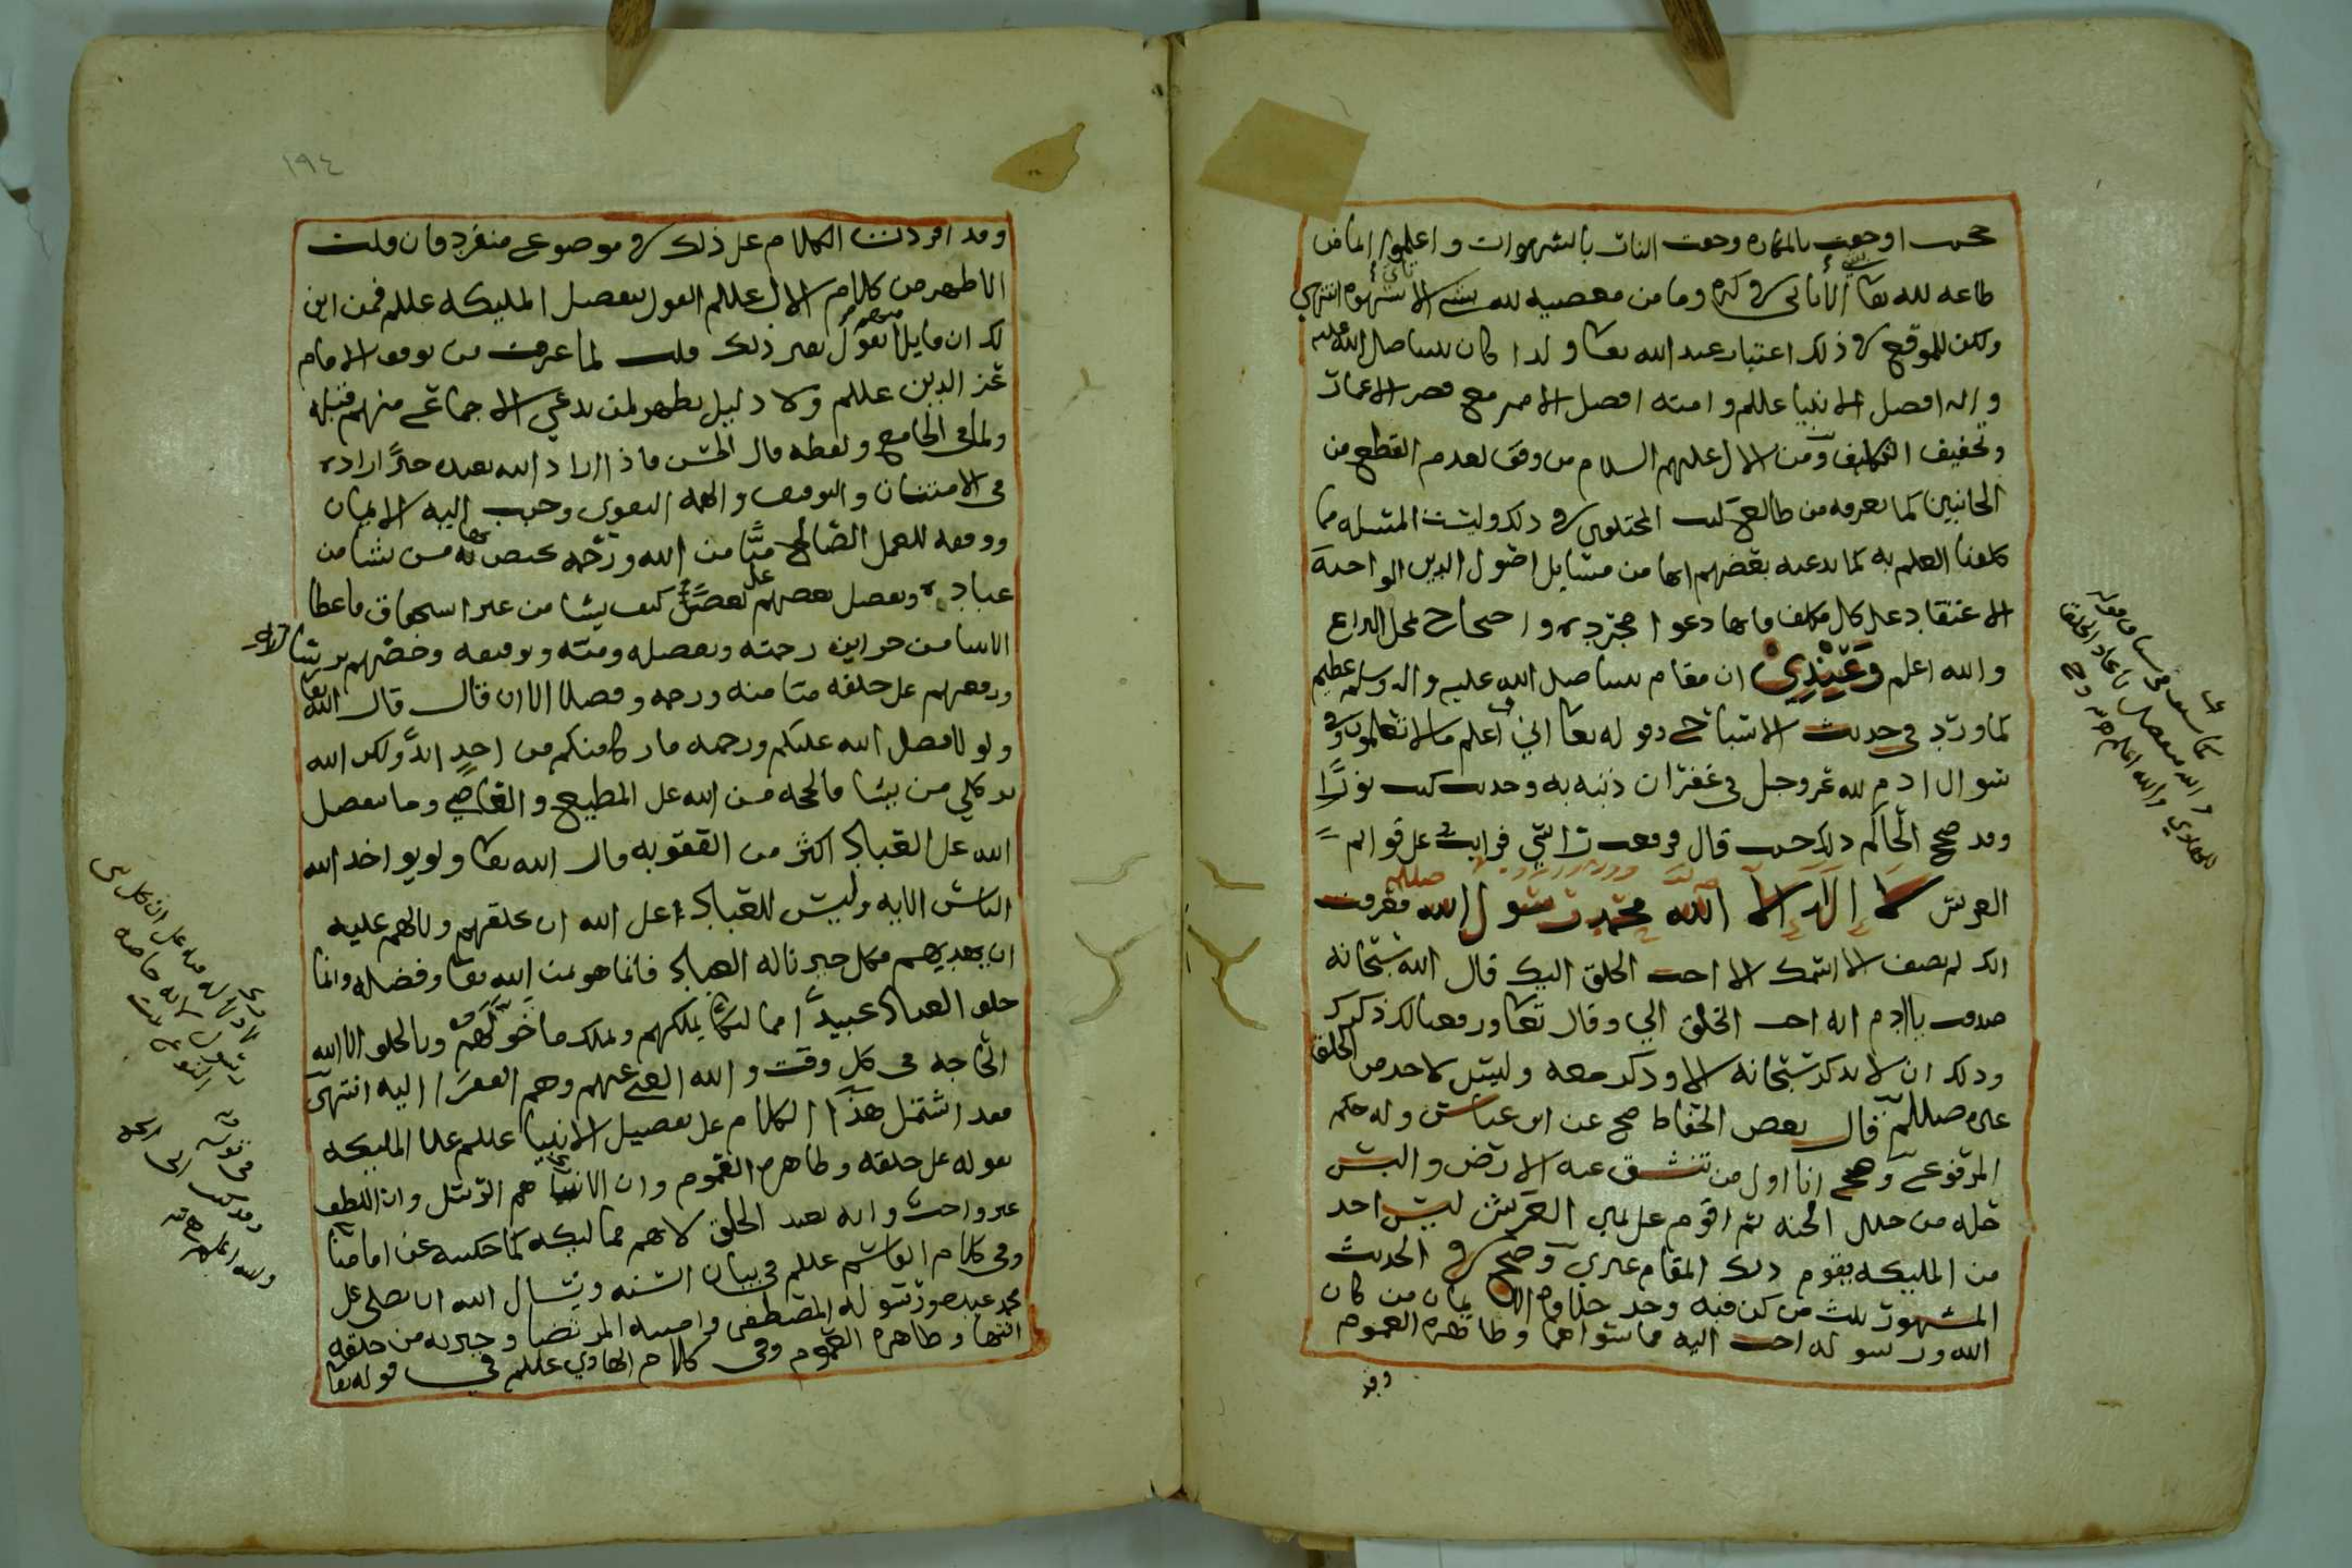 طاعه لله تعا الا ياتى في كره وما من معصيه لله الا شهوه انتهى
ولكن للموقع في ذلك اعتبار عند الله تعا ولذا كان نبينا صلى الله عليه
واله افضل الانبيا عللم وامته افضل الامم مع قصر الاعمار
وتخفيف التكليف ومن الال عليهم السلام من وقف لعدم القطع من
الجانبين كما يعرفه من طالع كتب المختلفين في ذلك وليست المسئله مما
كلفنا العلم به كما يدعيه بعضهم انها من مسايل اصول الدين الواجبة
الاعتقاد على كل مكلف فانها دعوا مجرده واحتجاج لمحل النزاع
والله اعلم وعندي ان مقام نبينا صلى الله عليه واله وسلم عظيم
كما ورد في حديث الاشباح وقوله تعا اني اعلم ما لا تعلمون وفي
سوال ادم لله عز وجل في غفران ذنبه به وحديث كنت نورًا
وقد صحح الحاكم ذلك حيث قال فرفعت راسي فرايت على قوائم
العرش لا إله إلا الله محمد رسول الله صللم فعرفت
انك لم تضف الى اسمك الا احب الخلق اليك قال الله سبحانه
صدقت يا ادم انه احب الخلق الي وقال تعا ورفعنا لك ذكرك
وذلك ان لا يذكر سبحانه الا وذكر معه وليس لاحد من الخلق
غيره صللم قال بعض الحفاظ صح عن ابن عباس وله حكم
المرفوع وصح انا اول من تنشق عنه الارض والبس
حله من حلل الجنه ثم اقوم على يمين العرش ليس احد
من المليكه يقوم ذلك المقام غيري وصح في الحديث
المشهور ثلث من كن فيه وجد حلاوة الايمان من كان
الله ورسوله احب اليه مما سواهما وظاهره العموم
وقد
١٩٤
وقد افردت الكلام على ذلك في موضوع منفرد فان قلت
الاظهر من كلام الال عللم القول بتفضيل المليكه عللم فمن اين
لك ان قايلا منهم يقول بغير ذلك قلت لما عرفت من توقف الامام
عز الدين عللم ولا دليل يظهر لمن يدعي الاجماع منهم قبله
ولما في الجامع ولفظه قال الحسن فاذا اراد الله بعبده خيرًا اراده
في الامتنان والتوفيق والهمه التقوى وحبب اليه الايمان
ووفقه للعمل الصالح منًّا من الله ورحمه يختص بها من يشا من
عباده وتفضيل بعضهم على بعض كيف يشا من غير استحقاق فاعطا
الانبيا من خزاين رحمته وتفضله ومنه وتوفيقه وخصهم
ورفعهم على خلقه منا منه ورحمه وفضلا الا ان قال قال الله تعا
ولولا فضل الله عليكم ورحمه ما زكا منكم من احد ابدًا ولكن الله
يزكي من يشا فالحجه من الله على المطيع والعاصي وما تفضل
الله على العباد اكثر من العقوبه قال الله تعا ولو يواخذ الله
الناس الايه وليس للعباد على الله ان يخلقهم ولا لهم عليه
ان يهديهم فكل خير ناله العباد فانما هو من الله تعا وفضله وانما
خلق العباد عبيدًا مماليكا يملكهم ويملك ما خولهم وبالخلق الا الله
الحاجه في كل وقت والله الغني عنهم وهم الفقرا اليه انتهى
فقد اشتمل هذا الكلام على تفضيل الانبيا عللم على المليكه
بقوله على خلقه وظاهره العموم وان الانبيا هم الرسل وان اللطف
غير واجب وانه تعبد الخلق لانهم مماليكه كما حكيته عن امامنا
وفي كلام القاسم عللم في بيان السنه ونسال الله ان يصلي على
محمد عبده ورسوله المصطفى وامينه المرتضا وخيرته من خلقه
انتها وظاهره العموم وفي كلام الهادي عللم في قوله تعا